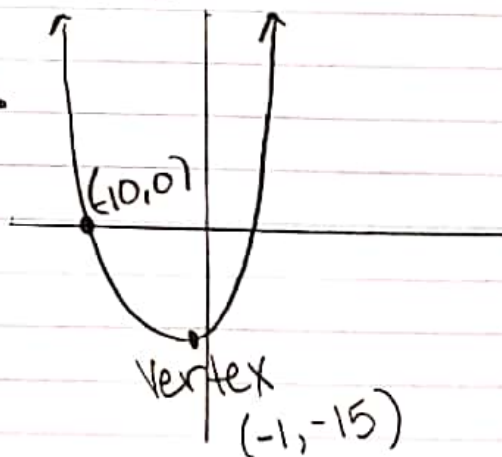 (-10,0)
Vertex
(-1,-15)